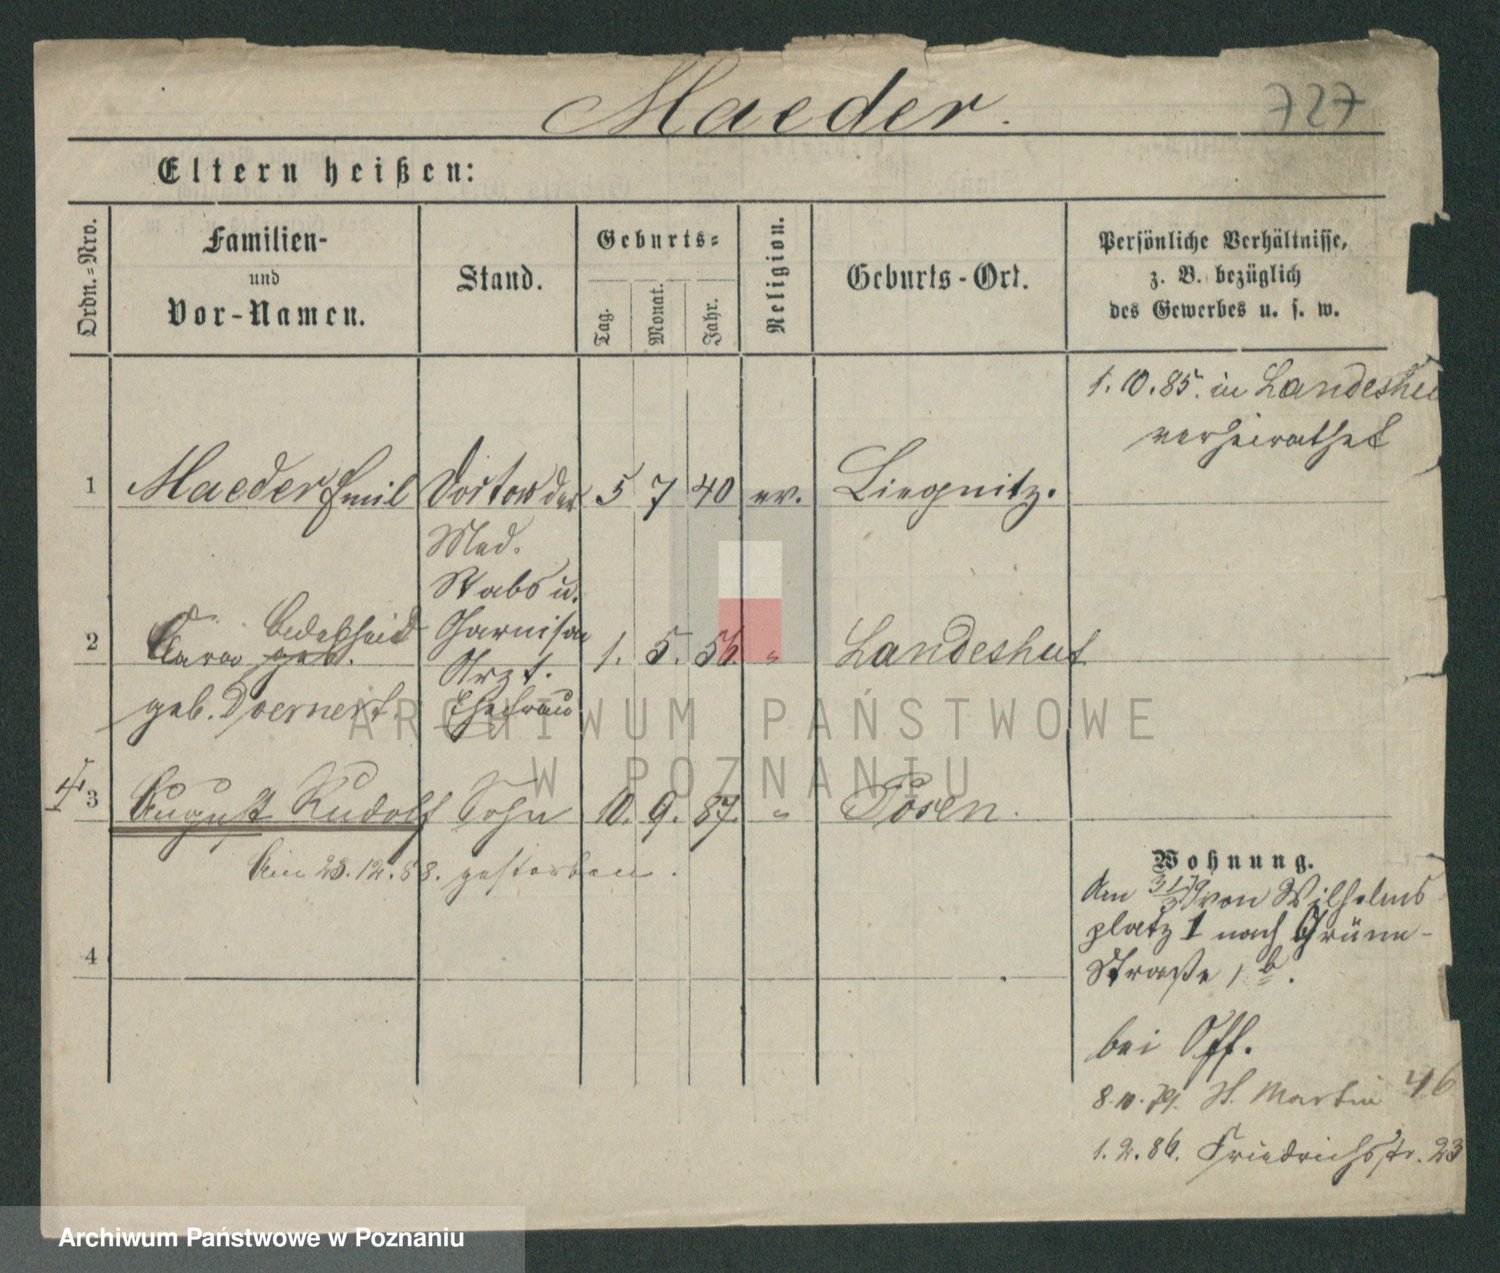 Maeder.
727
Eltern heißen:
Ordn.=Nro.
Familien-
und
Vor-Namen.
Stand.
Geburts=
Tag.
Monat.
Jahr.
Religion.
Geburts-Ort.
Persönliche Verhältnisse,
z. B. bezüglich
des Gewerbes u. s. w.
1. 10. 85. in Landeshu
verheirathet
1 Maeder Emil Doctor der 5 7 40 ev. Liegnitz.
Med.
Stabs u.
Garnison
Arzt.
2 Clara Adelheid geb. 1. 5. 56. " Landeshut
geb. Doernert. Ehefrau
3 August Rudolf Sohn 10. 9. 87. " Posen.
Am 23. 12. 88. gestorben.
4
Wohnung.
Am von Wilhelms
platz 1 nach Grüne-
Straße 1 b.
bei Off.
8. 10. 79. St. Martin 46
1. 2. 86. Friedrichsstr. 23
ARCHIWUM PAŃSTWOWE
W POZNANIU
Archiwum Państwowe w Poznaniu